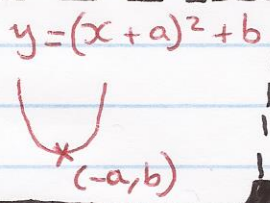 y=(x+a)²+b
(-a,b)